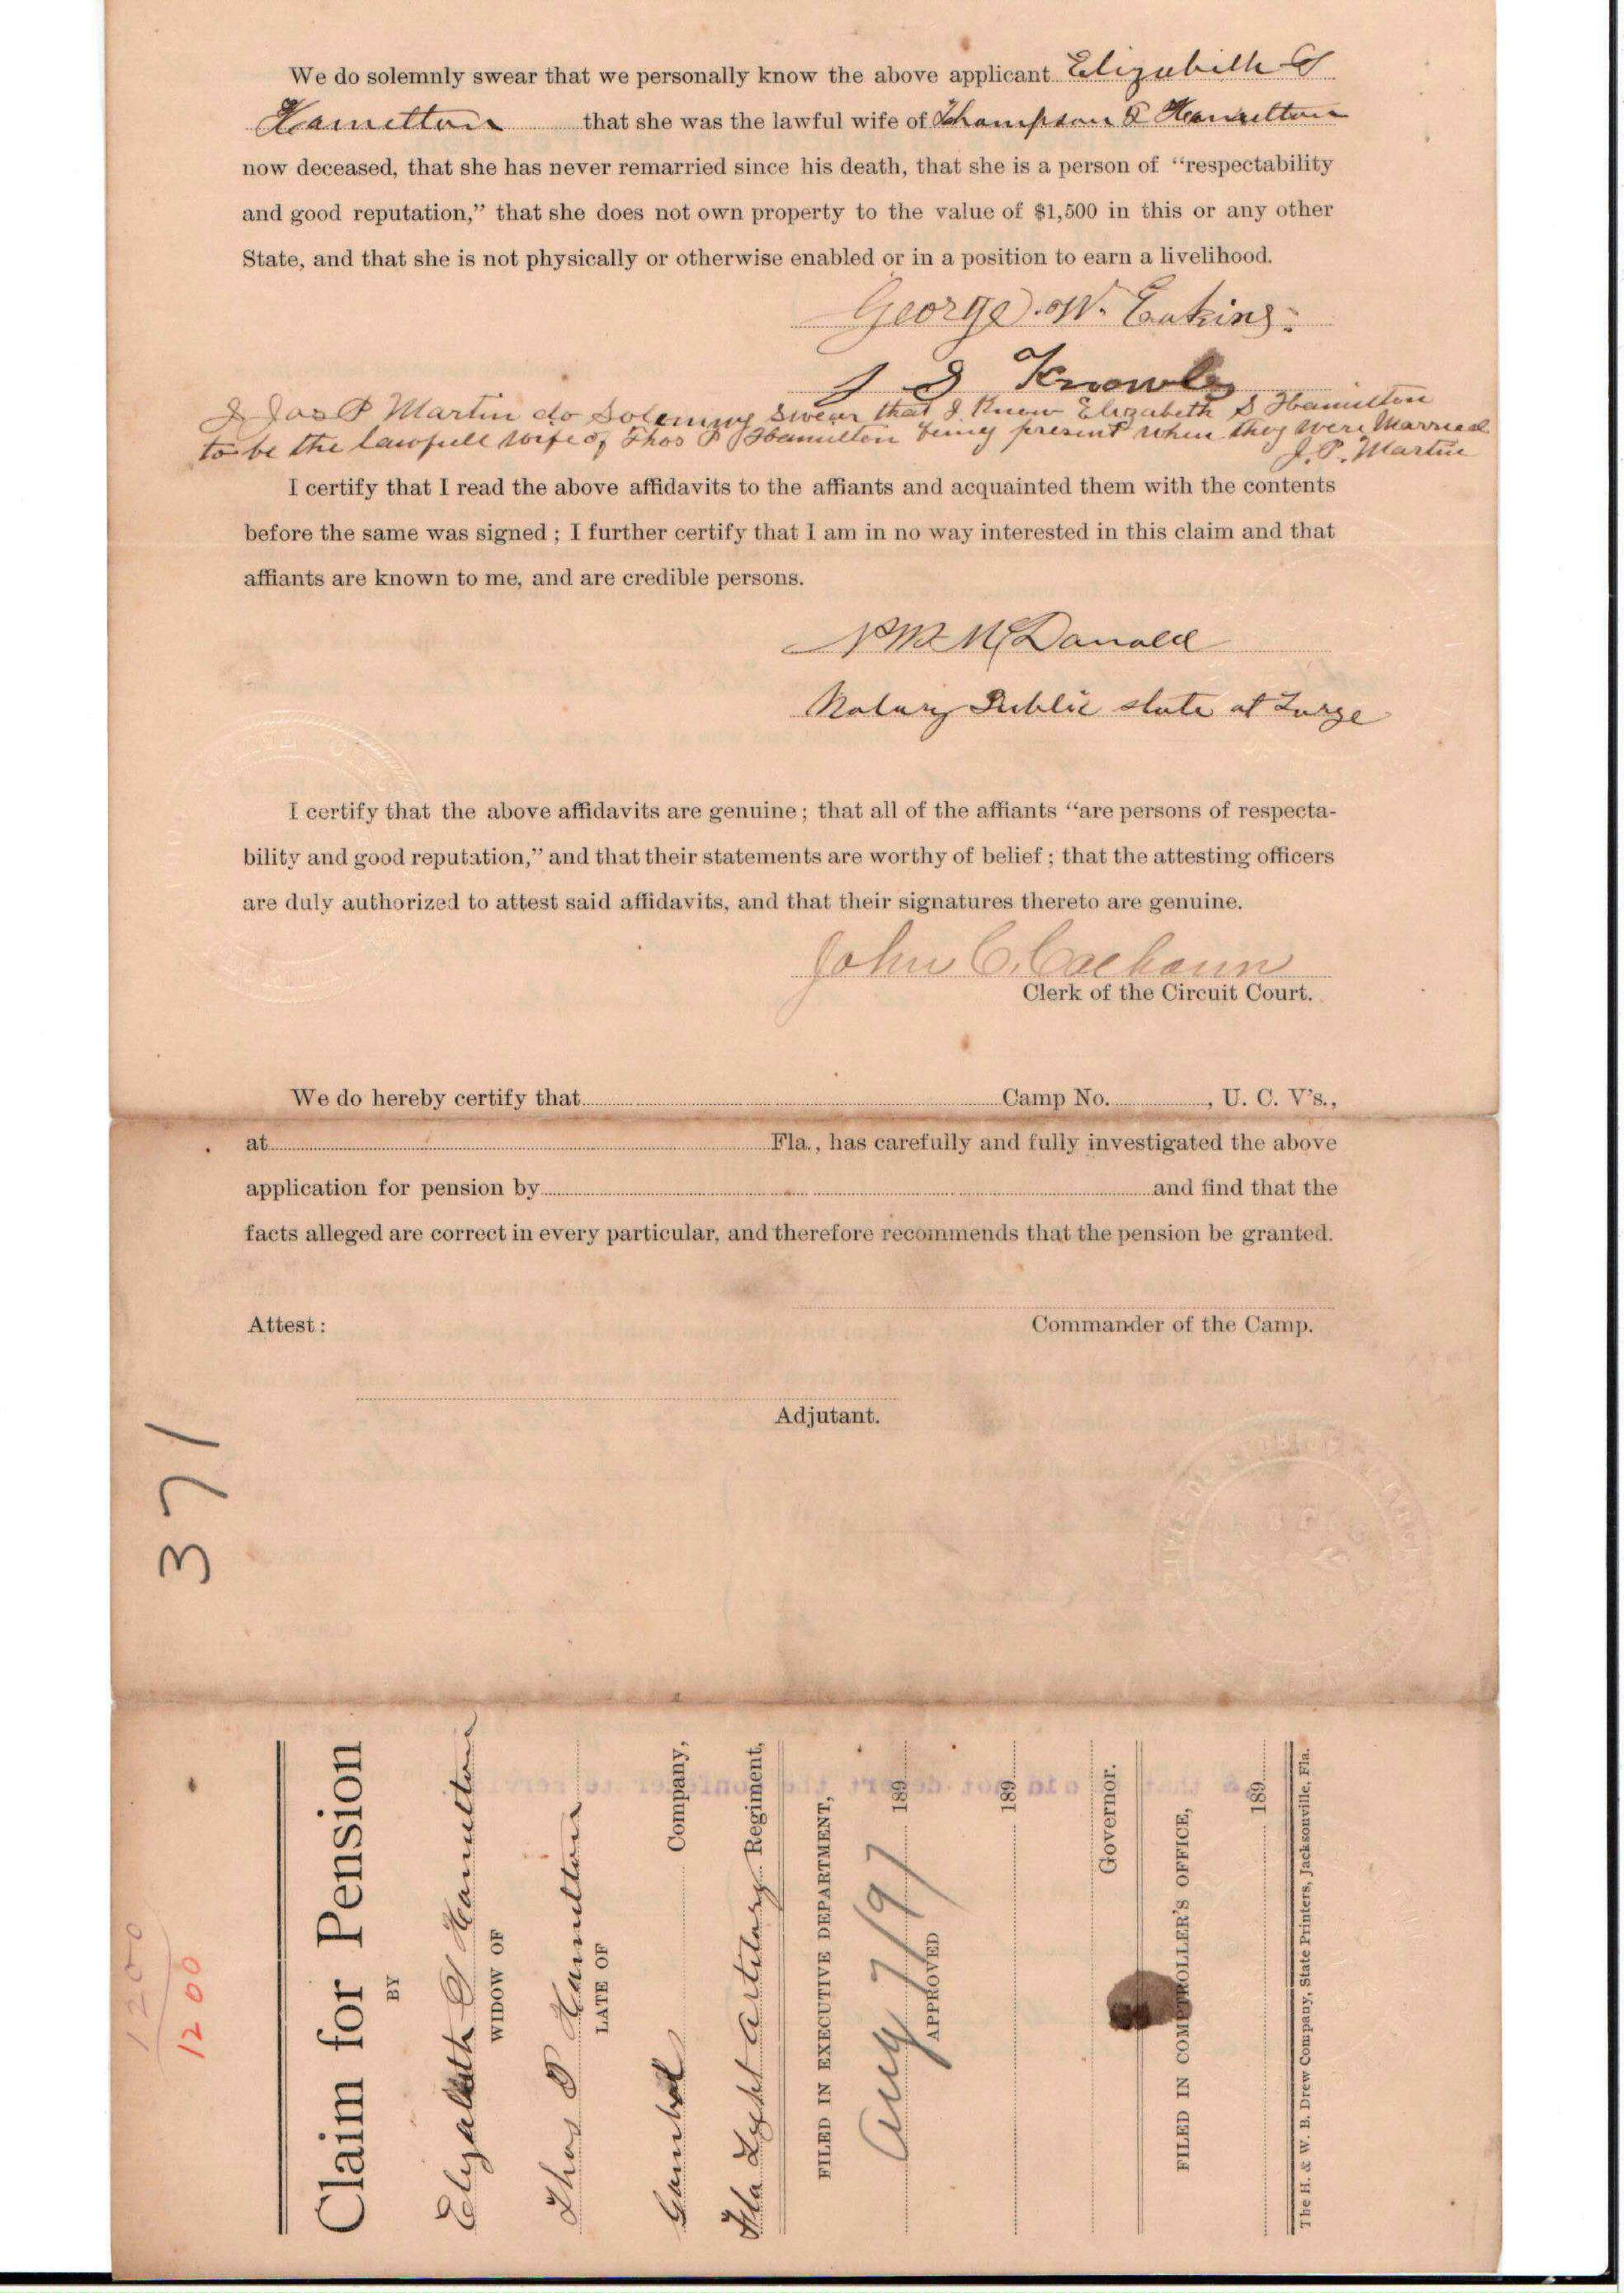 We do solemnly swear that we personally know the above applicant Elizabeth S
Hamilton that she was the lawful wife of Thompson P Hamilton
now deceased, that she has never remarried since his death, that she is a person of “respectability
and good reputation,” that she does not own property to the value of $1,500 in this or any other
State, and that she is not physically or otherwise enabled or in a position to earn a livelihood.
George W. Eakins.
Knowles
I Jas P Martin do Solemnly Swear that I Know Elizabeth S Hamilton
to be the lawfull wife of Thos P Hamilton being present when they were Married
J. P. Martin
I certify that I read the above affidavits to the affiants and acquainted them with the contents
before the same was signed; I further certify that I am in no way interested in this claim and that
affiants are known to me, and are credible persons.
McDanald
Notary Public state at Large
I certify that the above affidavits are genuine; that all of the affiants “are persons of respecta-
bility and good reputation,” and that their statements are worthy of belief; that the attesting officers
are duly authorized to attest said affidavits, and that their signatures thereto are genuine.
John C. Calhoun
Clerk of the Circuit Court.
We do hereby certify that Camp No. , U. C. V’s.,
at Fla., has carefully and fully investigated the above
application for pension by and find that the
facts alleged are correct in every particular, and therefore recommends that the pension be granted.
Attest: Commander of the Camp.
Adjutant.
371
1200
1200
Claim for Pension
BY
Elizabeth S Hamilton
WIDOW OF
Thos P Hamilton
LATE OF
Gambel Company,
Fla Light Artilary Regiment,
FILED IN EXECUTIVE DEPARTMENT,
Aug 7/97 189
APPROVED
189
Governor.
FILED IN COMPTROLLER’S OFFICE,
189
The H. & W. B. Drew Company, State Printers, Jacksonville, Fla.